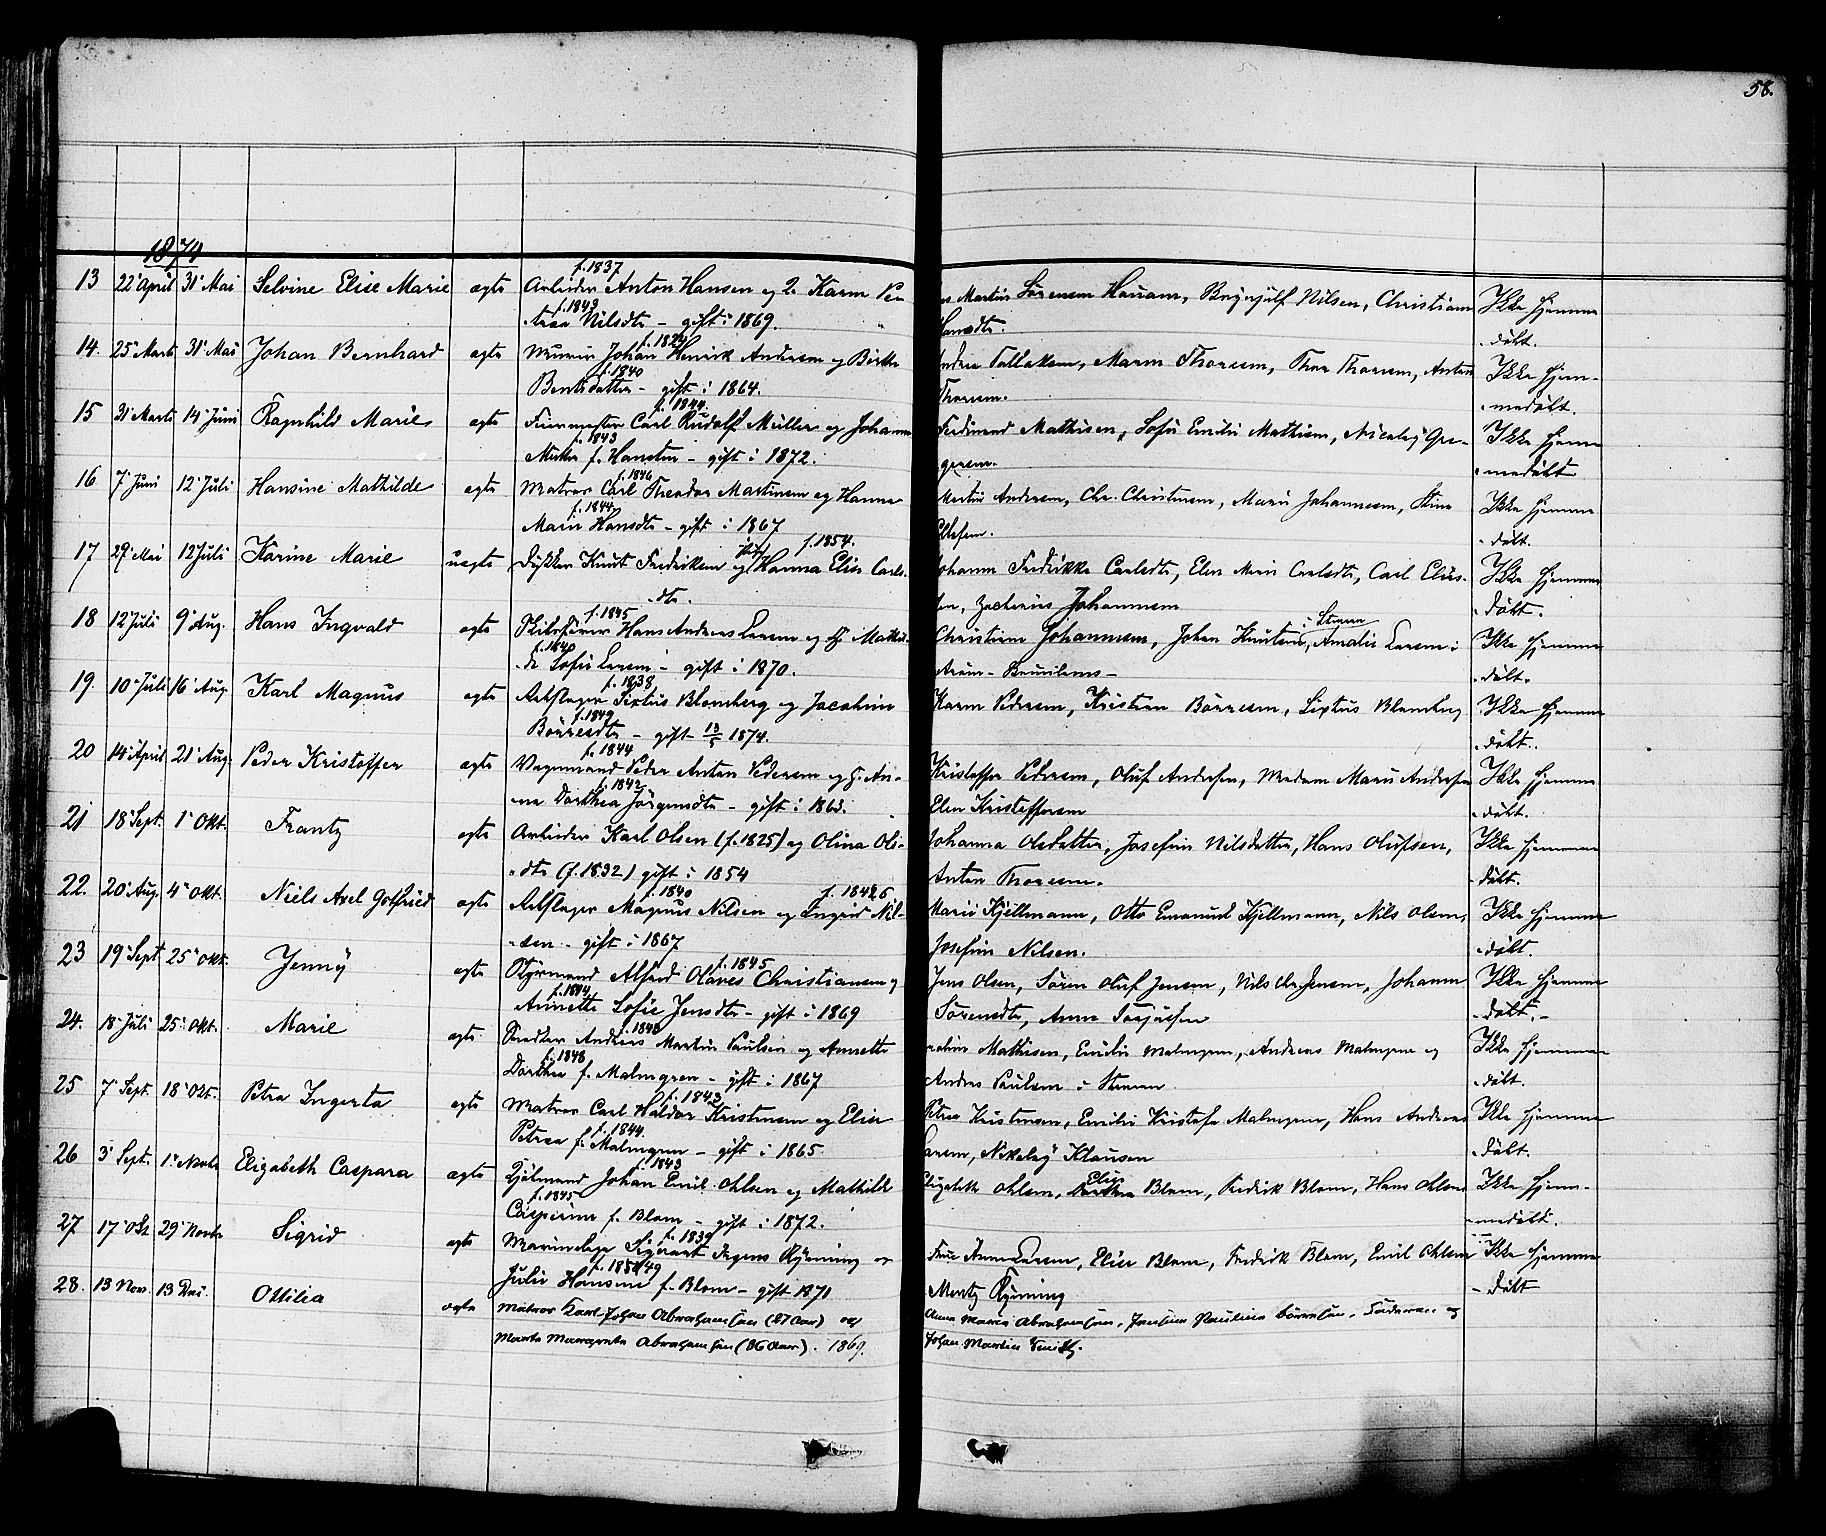 58.
1874
13 22' April 31' Mai Selvine Elise Marie ægte Arbeider Anton Hansen og 2. Karen Pe- f. 1837
trea Nilsdtr - gift i 1869. f. 1843
Martin Sörensen Hauam, Brynjulf Nilsen, Christiane Ikke hjemme
Hansdtr. döbt.
14. 25' Marts 31' Mai Johan Bernhard ægte Murer Johan Henrik Andersen og Birthe f. 1829
Bentsdatter - gift i 1864. f. 1840
Andrea Tallaksen, Maren Thoresen, Thor Thoresen, Anton Ikke hjem-
Thoresen. medöbt.
15 31' Marts 14' Juni Ragnhild Marie ægte Carl Rudolf Müller og Johanne f. 1844.
f. Hansten - gift i 1872. f. 1843
Ferdinand Mathisen, Sofie Emilie Mathisen, Nicolay Gre- Ikke hjem
gersen. medöbt.
16 7' Juni 12' Juli Hansine Mathilde ægte Matros Carl Theodor Martinsen og Hanna f. 1846
Marie Hansdtr - gift i 1867 f. 1844
Martin Andersen, Chr. Christensen, Marie Johannesen, Stine Ikke hjemme
Ellefsen. döbt.
17 29' Mai 12 Juli Karine Marie uægte Dykker Knut Fredriksen og Hanna Elise Carls- f. 1854.
dtr.
Johanne Fredrikke Carlsdtr, Elen Marie Carlsdtr, Carl Elias- Ikke hjemme
sen, Zacharias Johannesen döbt.
18 12 Juli 9' Aug. Hans Ingvald ægte Skibsförer Hans Andreas Larsen og H. Mathil- f. 1845
de Sofie Larsen - gift i 1870. f. 1840
Christian Johannesen, Johan Knutsen, Amalie Larsen i Ikke hjemme
döbt.
19. 10' Juli 16' Aug. Karl Magnus ægte Rebslager Sixtus Blomberg og Jacobine f. 1838
Börresdtr - gift 13/5 1874. f. 1849
Karen Pedersen, Kristian Börresen, Sixtus Blomberg Ikke hjemme
döbt.
20 14' April 21' Aug. Peder Kristoffer ægte Vognmand Peder Anton Pedersen og H. An- f. 1844
na Dorthea Jörgensdtr - gift i 1863. f. 1842
Kristoffer Pedersen, Oluf Andersen, Madam Maren Andersen Ikke hjemme
Elen Kristoffersen döbt.
21 18' Sept. 1' Okt. Frantz ægte Arbeider Karl Olsen (f. 1825) og Olina Ols-
dtr (f. 1832) gift i 1854
Johanna Olsdatter, Josefine Nilsdatter, Hans Olufsen, Ikke hjemme
Anton Thoresen. döbt.
22. 20' Aug. 4' Okt. Niels Axel Gotfried ægte Rebslager Magnus Nilsen og Ingrid Nil- f. 1840
sen - gift i 1867
Marie Kjellmann, Otto Emanuel Kjellmann, Nils Olsen, Ikke hjemme
Josefine Nilsen. döbt.
23 19' Sept 25' Okt. Jenny ægte Styrmand Alfred Olaves Christiansen og f. 1845
Annette Sofie Jensdtr - gift i 1869 f. 1844
Jens Olsen, Sören Oluf Jensen, Nils Chr. Jensen, Johanne Ikke hjemme
Sörensdtr, Anne Torjusen döbt.
24. 18' Juli 25' Okt. Marie ægte Snedker Andreas Martin Paulsen og Annette
Dorthea f. Malmgren - gift i 1867 f. 1848
Mathisen, Emilie Malmgren, Andreas Malmgren og Ikke hjemme
Andreas Paulsen i Skeen döbt.
25 7' Sept. 18' Okt. Petra Ingerta ægte Matros Carl Haldor Kristensen og Elise f. 1843
Petrea f. Malmgren - gift i 1865 f. 1844.
Petrea Kristensen, Emilie Kristofa Malmgren, Hans Andreas Ikke hjemme
Larsen, Nikolay Klausen döbt.
26 3' Sept. 1' Novbr Elizabeth Caspara ægte Johan Emil Ohlsen og Mathilde f. 1843
Casperine f. Blom - gift i 1872. f. 1845
Elizabeth Ohlsen, Elise Blom, Fredrik Blom, Hans Ohlsen Ikke hjem-
medöbt.
27 17' Okt 29' Novbr Sigrid ægte Sigvart Jörgens Ryning og f. 1839
Julie Hansine f. Blom - gift 1871
Frue Anne Larsen, Elise Blom, Fredrik Blom, Emil Ohlsen Ikke hjemme
Mentz Ryning döbt
28. 13 Nov. 13 Ottilia ægte Matros Karl Johan Abrahamsen (27 Aar) og
Marte Margrete Abrahamsen (26 Aar). 1869.
Anna Maria Abrahamsen, Paulina og
Johan Martin